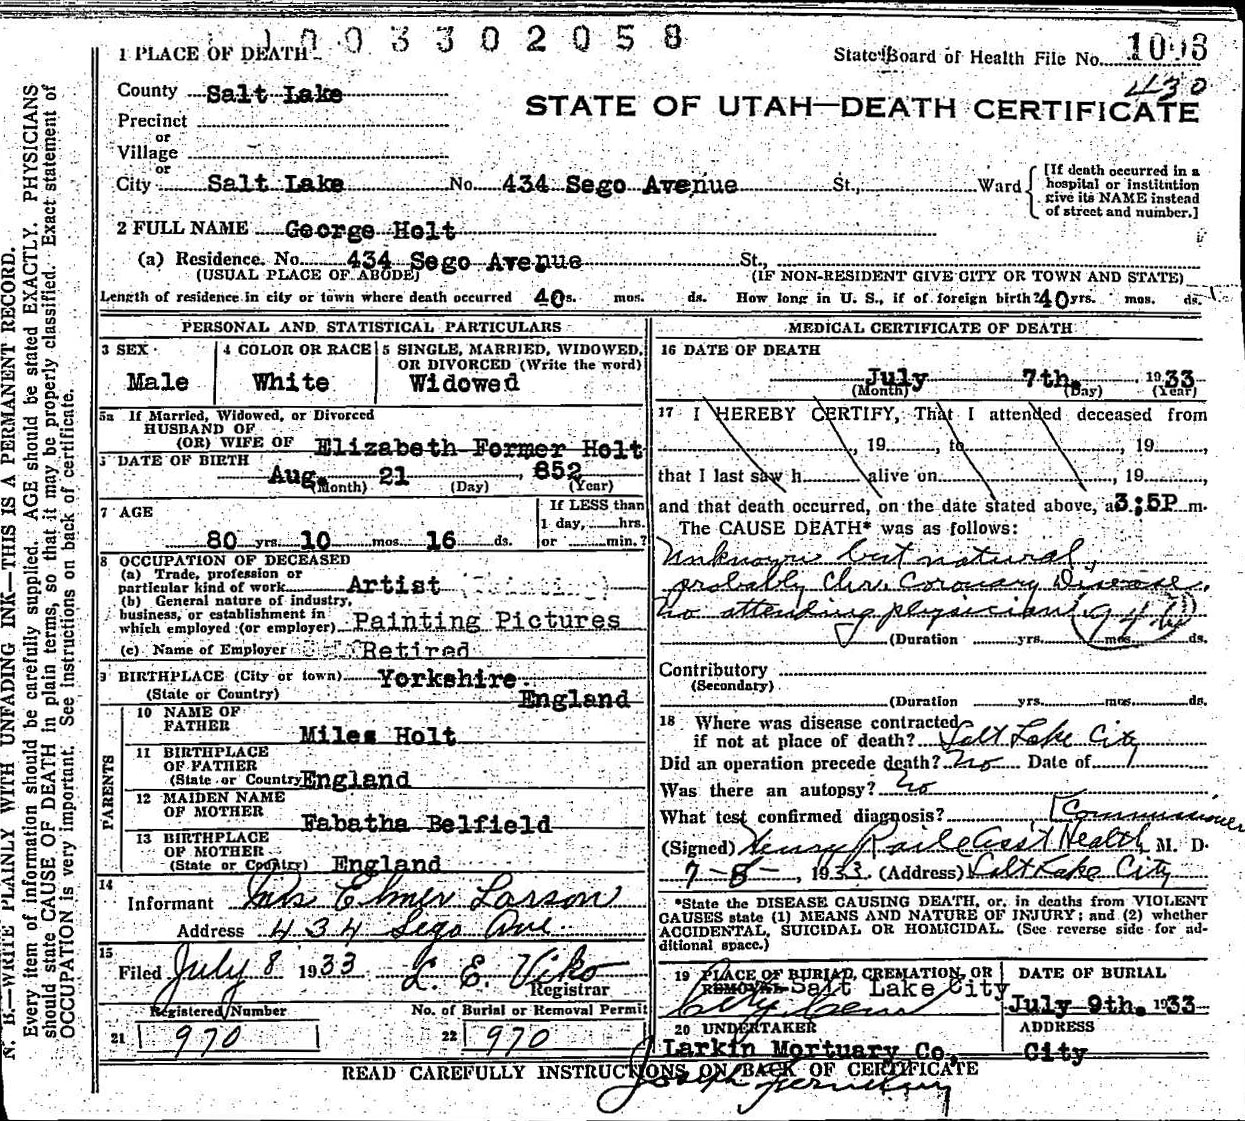 1003302058
1 PLACE OF DEATH
State Board of Health File No. 1098
430
County Salt Lake
STATE OF UTAH—DEATH CERTIFICATE
Precinct
or
Village
or
City Salt Lake No. 434 Sego Avenue St., Ward
[If death occurred in a
hospital or institution
give its NAME instead
of street and number.]
2 FULL NAME George Holt
(a) Residence. No. 434 Sego Avenue St.,
(USUAL PLACE OF ABODE) (IF NON-RESIDENT GIVE CITY OR TOWN AND STATE)
Length of residence in city or town where death occurred 40 s. mos. ds. How long in U. S., if of foreign birth? 40 yrs. mos. ds.
PERSONAL AND STATISTICAL PARTICULARS
3 SEX
Male
4 COLOR OR RACE
White
5 SINGLE, MARRIED, WIDOWED,
OR DIVORCED (Write the word)
Widowed
5a If Married, Widowed, or Divorced
HUSBAND OF
(OR) WIFE OF Elizabeth Former Holt
DATE OF BIRTH
Aug. 21, 852
(Month) (Day) (Year)
7 AGE
80 yrs. 10 mos. 16 ds.
If LESS than
1 day, hrs.
or min.?
8 OCCUPATION OF DECEASED
(a) Trade, profession or
particular kind of work Artist
(b) General nature of industry,
business, or establishment in
which employed (or employer) Painting Pictures
(c) Name of Employer Retired
9 BIRTHPLACE (City or town) Yorkshire
(State or Country) England
PARENTS
10 NAME OF
FATHER Miles Holt
11 BIRTHPLACE
OF FATHER
(State or Country) England
12 MAIDEN NAME
OF MOTHER Fabatha Belfield
13 BIRTHPLACE
OF MOTHER
(State or Country) England
14
Informant Mrs Elmer Larson
Address 434 Sego Ave
15
Filed July 8 1933 L. E. Viko
Registrar
Registered Number
21 970
No. of Burial or Removal Permit
22 970
MEDICAL CERTIFICATE OF DEATH
16 DATE OF DEATH
July 7th. , 1933
(Month) (Day) (Year)
17 I HEREBY CERTIFY, That I attended deceased from
, 19 , to , 19 ,
that I last saw h alive on , 19 ,
and that death occurred, on the date stated above, a 3;5P m.
The CAUSE DEATH* was as follows:
Unknown but natural,
probably Chr. Coronary Disease,
no attending physician
(Duration yrs. mos. ds.
Contributory
(Secondary)
(Duration yrs. mos. ds.
18 Where was disease contracted
if not at place of death? Salt Lake City
Did an operation precede death? No Date of
Was there an autopsy? No
What test confirmed diagnosis?
Commissioner
(Signed) Henry Raile Ass't Health M. D.
7-8-, 1933 (Address) Salt Lake City
*State the DISEASE CAUSING DEATH, or, in deaths from VIOLENT
CAUSES state (1) MEANS AND NATURE OF INJURY; and (2) whether
ACCIDENTAL, SUICIDAL OR HOMICIDAL. (See reverse side for ad-
ditional space.)
19 PLACE OF BURIAL, CREMATION, OR
REMOVAL Salt Lake City
City Cem
DATE OF BURIAL
July 9th. 1933
20 UNDERTAKER
Larkin Mortuary Co.
ADDRESS
City
READ CAREFULLY INSTRUCTIONS ON BACK OF CERTIFICATE
Joseph
N. B.—WRITE PLAINLY WITH UNFADING INK—THIS IS A PERMANENT RECORD.
Every item of information should be carefully supplied. AGE should be stated EXACTLY. PHYSICIANS
should state CAUSE OF DEATH in plain terms, so that it may be properly classified. Exact statement of
OCCUPATION is very important. See instructions on back of certificate.